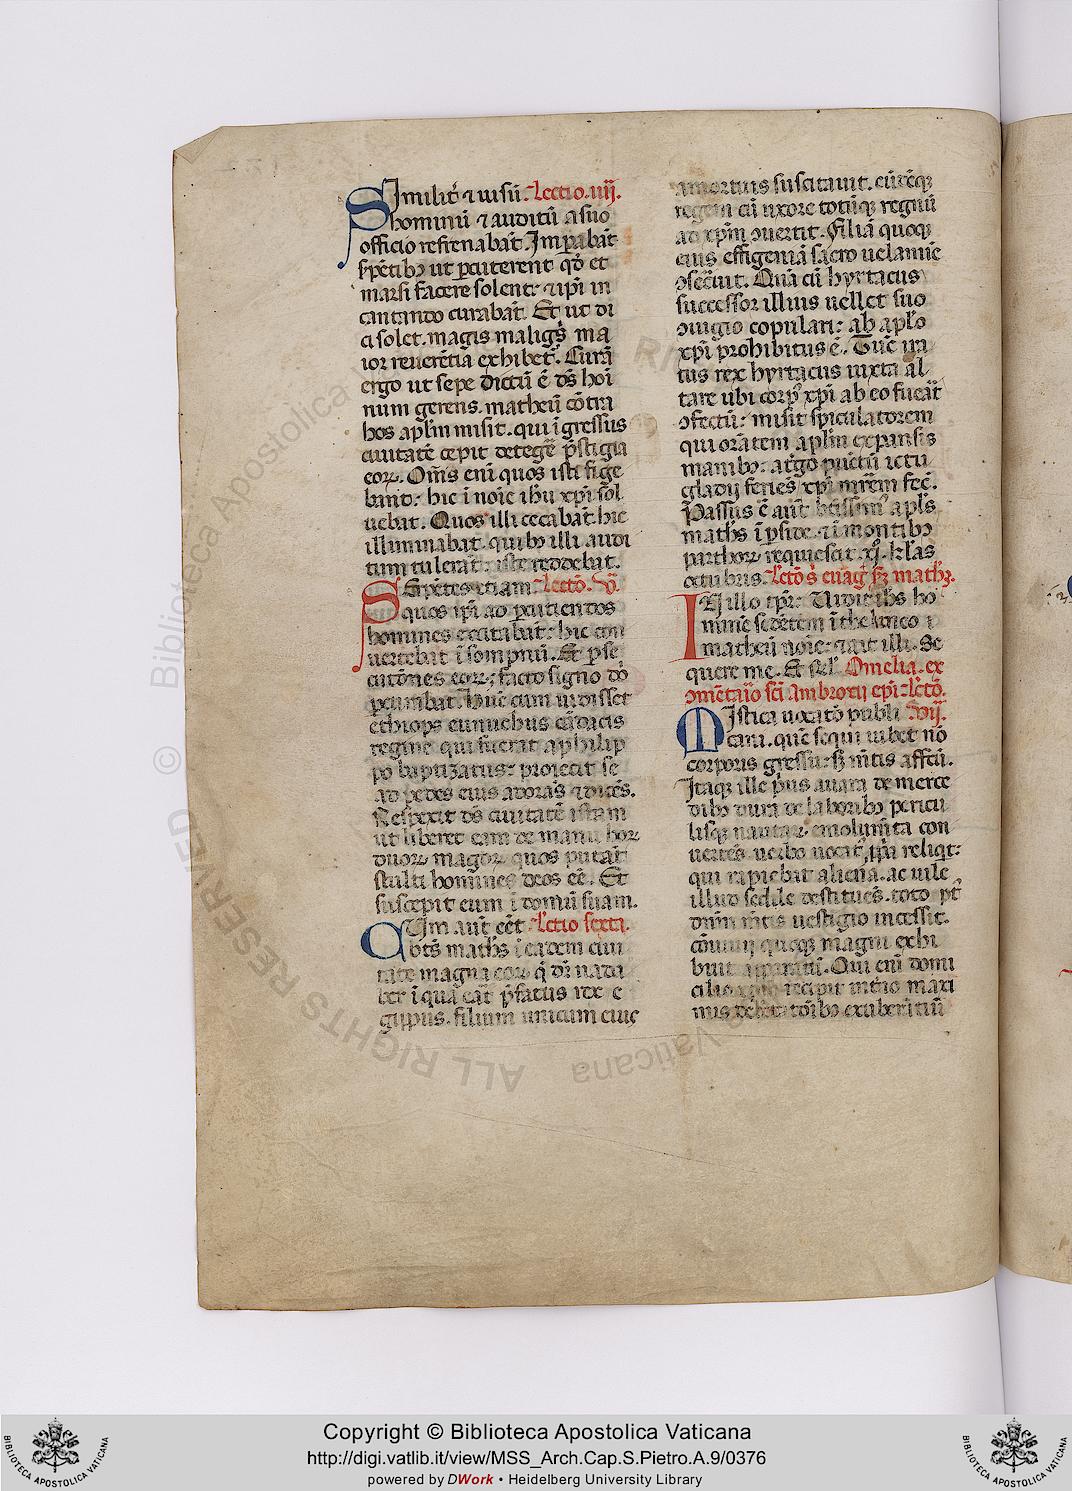 Similit̾ ⁊ uisũ. Lectio .iiij.
hominũ ⁊ auditũ a suo
officio refrenabãt. Imp̱abãt
serp̱entibꝫ ut p̱cuterent qđ et
marsi facere solent: ⁊ ip̃i in
cantando curabãt. Et ut di
ci solet. magis malig̾s ma
ior reuerẽtia exhibet̾. Curã
ergo ut sepe dictũ ẽ dñs hoĩ
num gerens. matheũ cõtra
hos apl̃m misit. qui ĩgressus
ciuitatẽ cepit detegẽ p̾stigia
eoꝝ. Oms̃ eni quos isti fige
bant: hic ĩ noĩe ihũ xp̃i sol
uebat. Quos illi cecabãt. hic
illuminabat. quibꝫ illi audi
tum tulerãt: iste reddebat.
Serpẽtes etiam Lectõ. v̾.
quos ip̃i ad p̱cutiendos
homines excitabãt: hic con
uertebat ĩ sompnũ. Et p̱se
cutiões eoꝝ: facto signo dõ
p̱curabat. Hũc cum uidisset
ethiops eunuchus cãdacis
regine qui fuerat a philip
po baptizatus: proiecit se
ad pedes eius adorãs ⁊ dicẽs.
Respexit ds̃ ciuitatẽ istam
ut liberet eam de manu hoꝝ
duoꝝ magoꝝ quos putãt
stulti homines deos eẽ. Et
suscepit eum ĩ domũ suam.
Cum aut̃ eẽt Lectio sexta.
bt̃s math̾s ĩ eadem ciui
tate magna eoꝝ q̃ dr̃ nada
ber ĩ qua erãt p̾fatus rex e
gippus. filium unicum eius
a mortuis suscitauit. eũdẽqꝫ
regem cũ uxore totũqꝫ regnũ
ad xp̃m ꝯuertit. Filiã quoqꝫ
eius effigeniã sacro uelamĩe
ꝯsec̾uit. Quã cũ hyrtacus
successor illius uellet suo
ꝯiugio copulari: ab aplõ
xp̃i prohibitus ẽ. Tũc ira
tus rex hyrtacus iuxta al
tare ubi corp̾ xp̃i ab eo fuerãt
ꝯfectũ: misit spiculatorem
qui orãtem apl̃m expansis
manibꝫ: a t̾go pũctũ ictu
gladij feriẽs xp̃i mr̃em fec̃.
Passus ẽ aut̃ bẽissim̾ apl̃s
math̾s ĩ p̱side. ⁊ ĩ montibꝫ
parthoꝝ requiescit. xj. kl̃as
octubris. Lectõ s̾ euãg. sꝫ math̾.
In illo tp̃r: Vidit ihs ho
minẽ sedẽtem ĩ theloneo
matheũ noĩe: ⁊ ait illi. Se
quere me. Et rel̃. Omelia. ex
ꝯmẽtario sc̃i ambrosij epĩ: lectõ.
Mistica uocatõ publi .vij.
cani. quẽ sequi iubet nõ
corporis gressu: sꝫ mẽtis affectũ.
Itaqꝫ ille p̾us auara de merce
dibꝫ dura de laboribꝫ pericu
lisqꝫ nautaꝝ emolumẽta con
uertẽs uerbo uocat̾, p̾a reliqt:
qui rapiebat aliena. ac uile
illud sedile destituẽs. toto pt̾
dñm mẽtis uestigio incessit.
cõuiuij quoqꝫ magni exhi
buit apparatũ. Qui eni domi
cilio xp̃m recipit intrio maxi
mis delect̾ toĩbꝫ exuberãtiũ

Copyright © Biblioteca Apostolica Vaticana
http://digi.vatlib.it/view/MSS_Arch.Cap.S.Pietro.A.9/0376
powered by DWork • Heidelberg University Library
BIBLIOTECA APOSTOLICA VATICANA
BIBLIOTECA APOSTOLICA VATICANA
© Biblioteca Apostolica Vaticana
ALL RIGHTS RESERVED